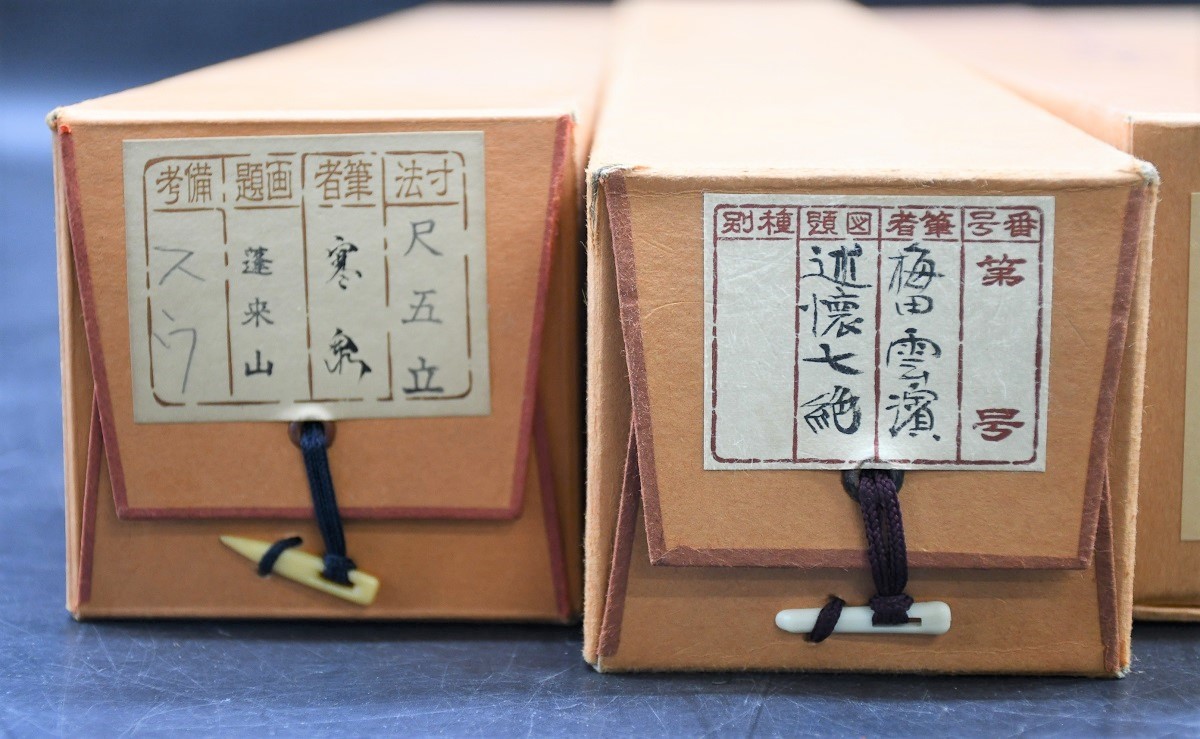 寸法
尺五立
筆者
寒泉
画題
蓬来山
備考
スウ
番号
第 号
筆者
梅田雲濱
図題
述懐七絶
種別